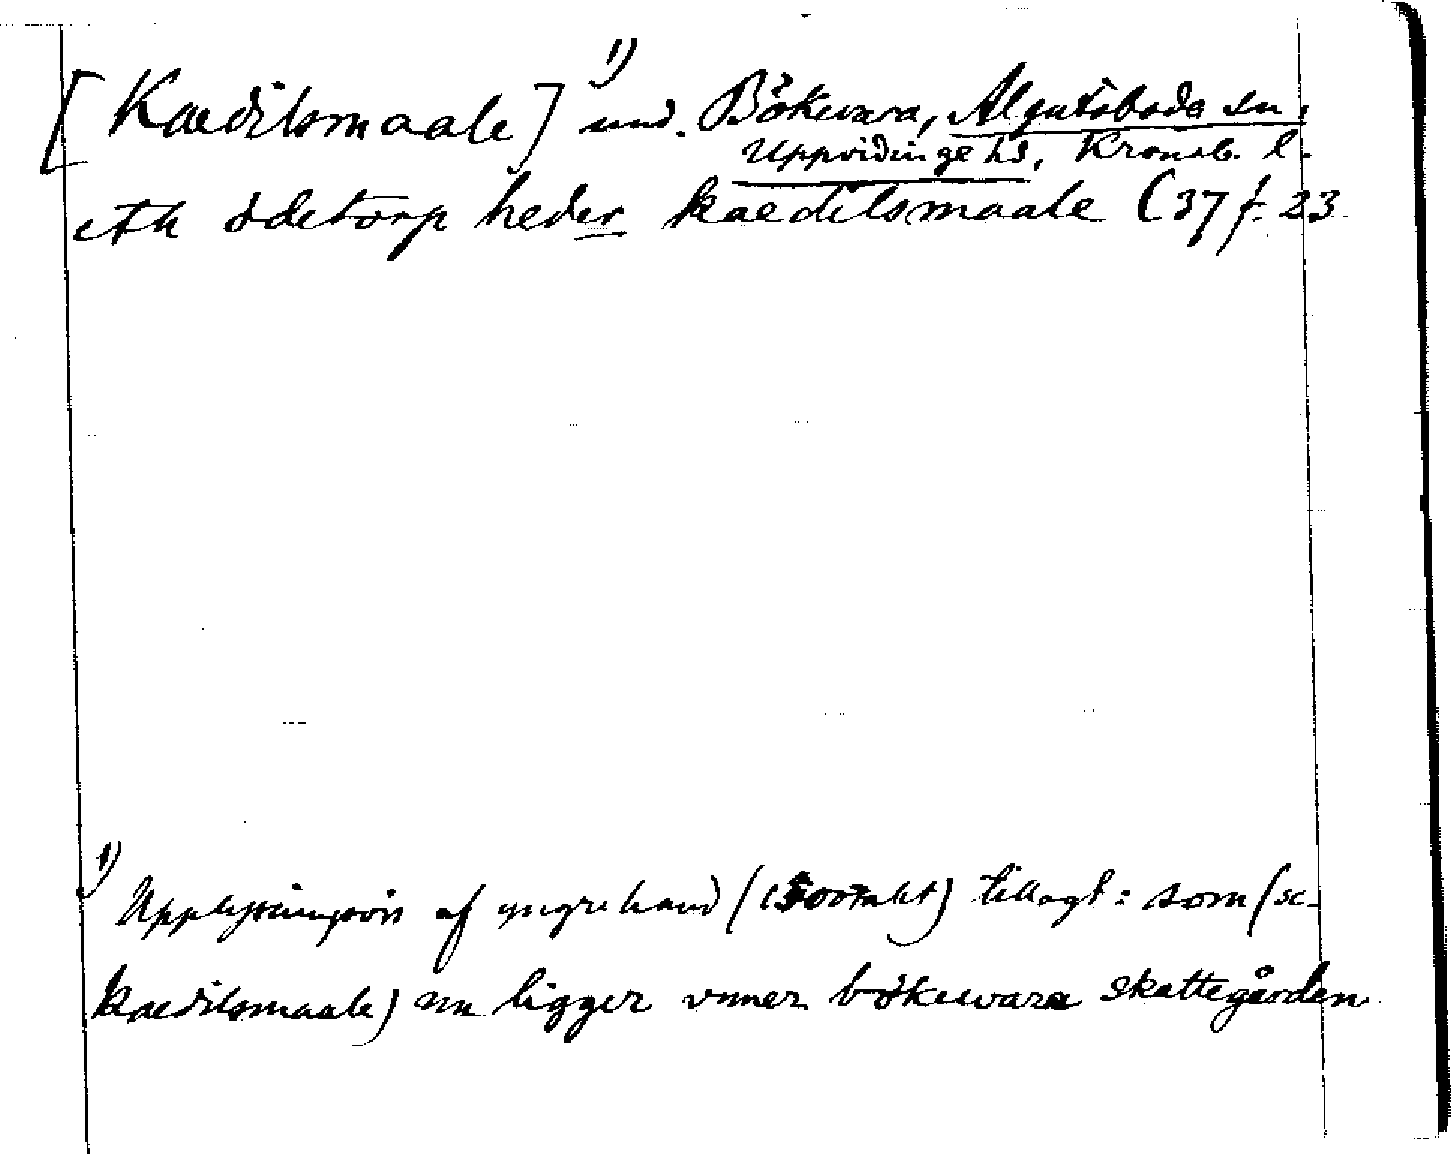 [Kaedilsmaale] 1) und. Bökevara, Algutsboda sn,
Uppvidinge hd, Kronob. l.
eth ödetorp heder kaedilsmaale (37 f. 23
1) Upplysningsvis af yngre hand (1500talet) tillagt: som (sc.
kaedilsmaale) nu ligger vnner bökewara skattegården